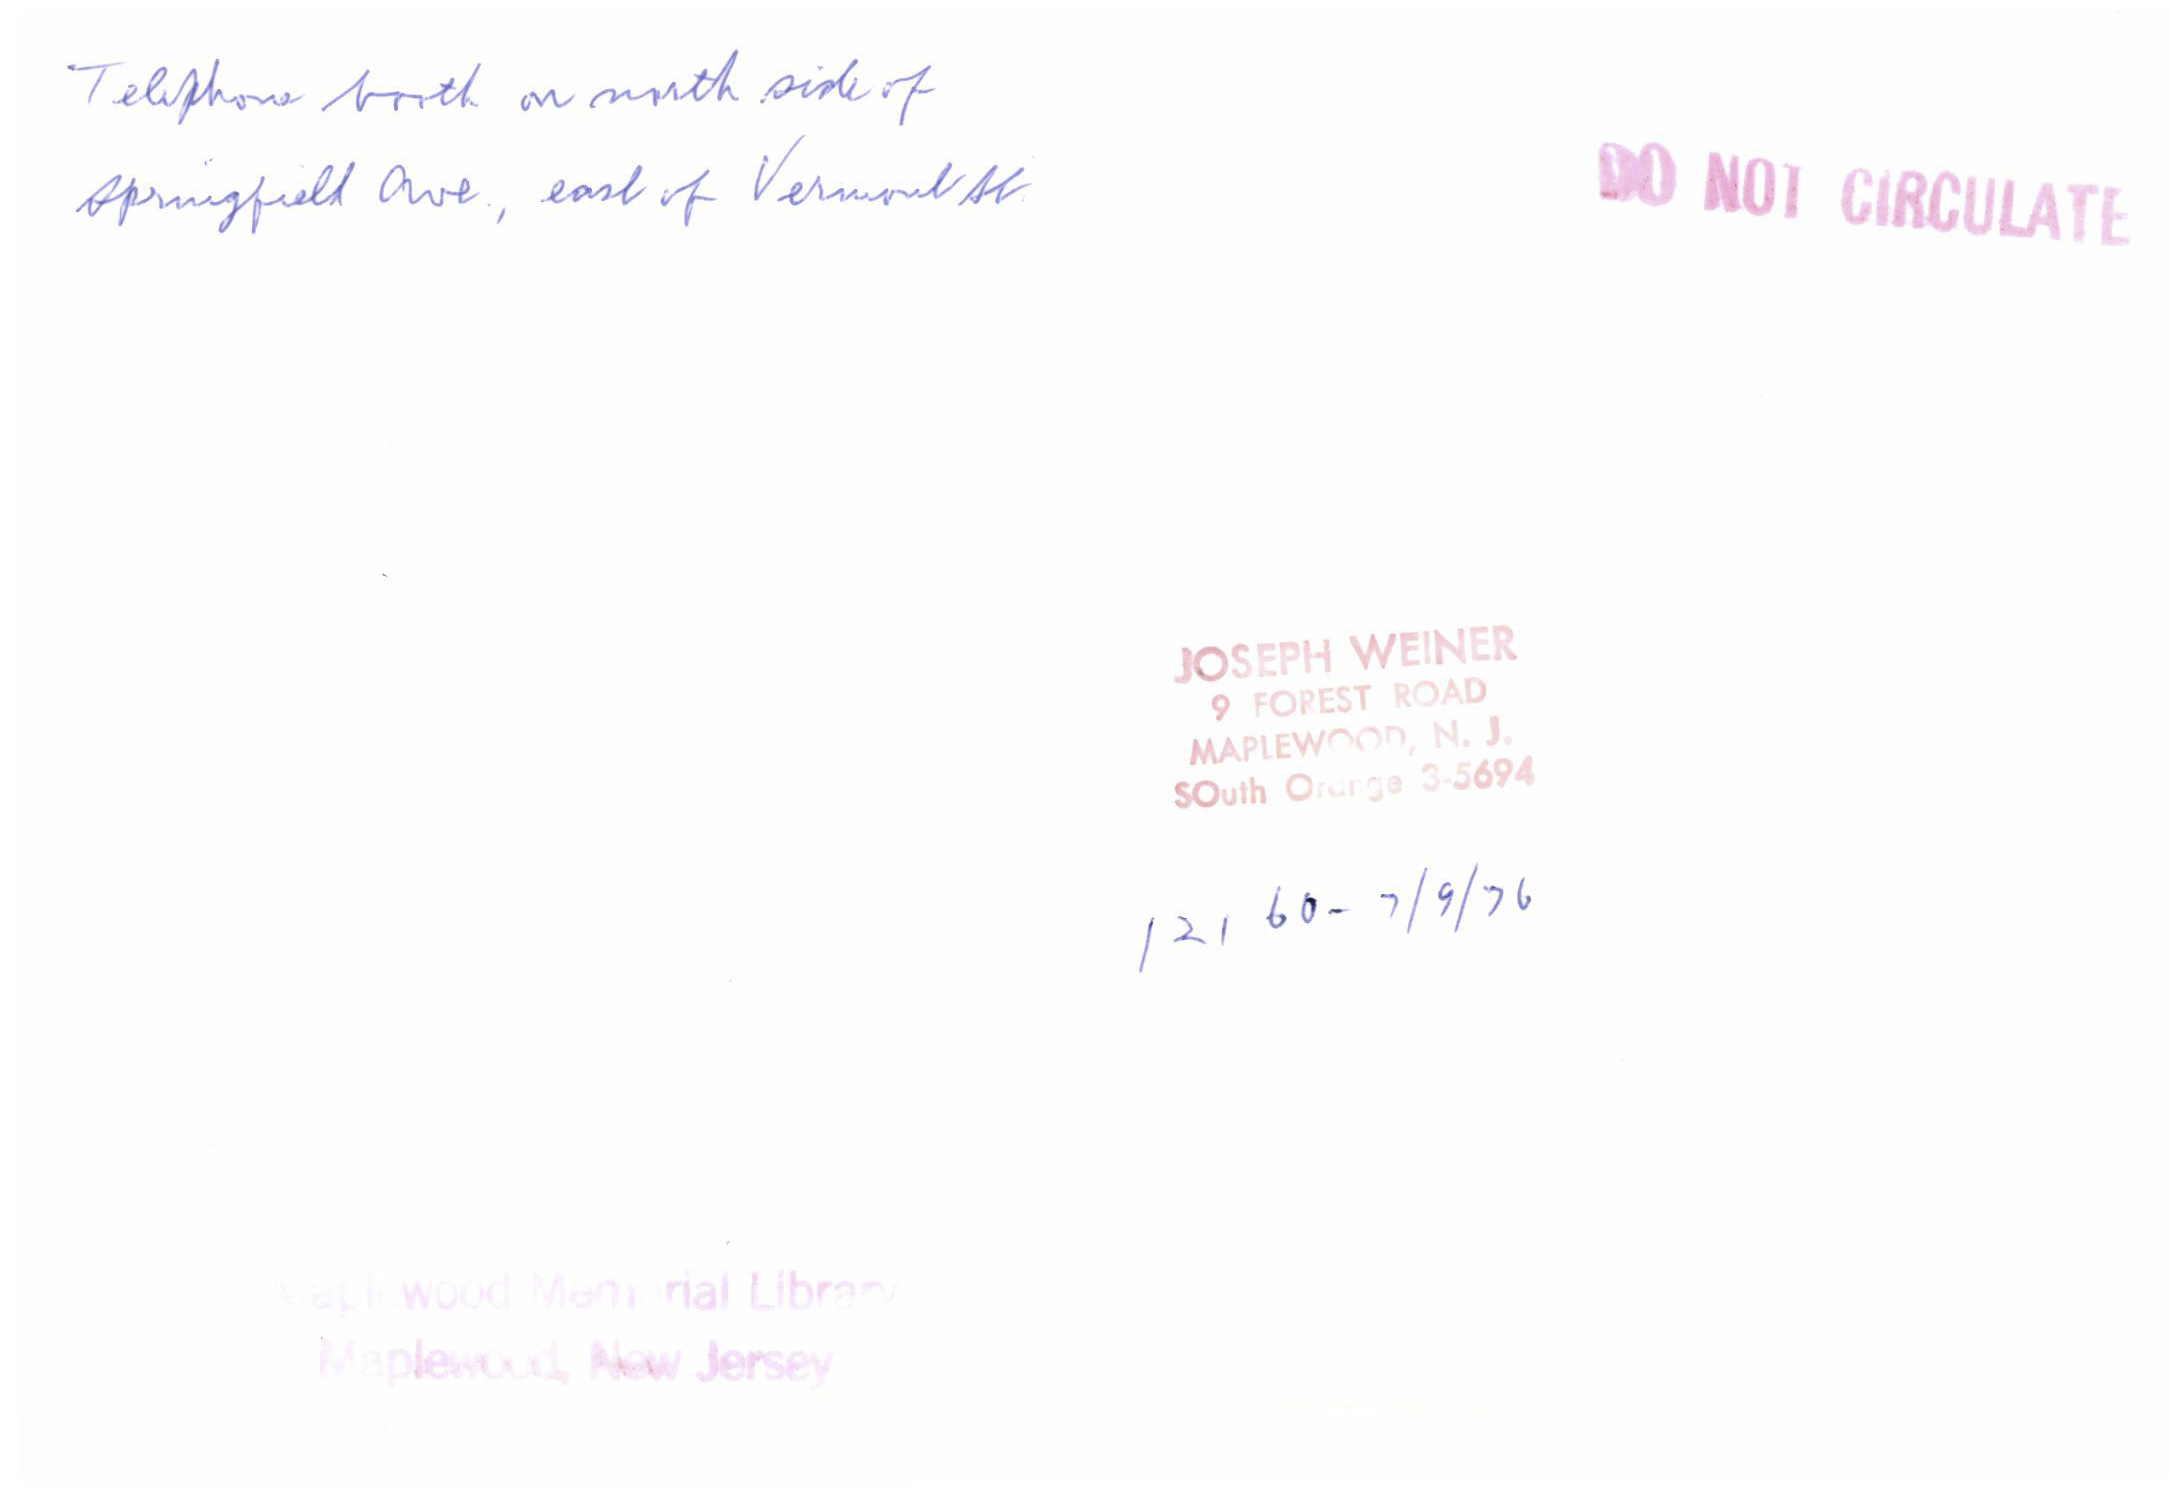 Telephone booth on north side of
Springfield Ave., east of Vermont St.
DO NOT CIRCULATE
JOSEPH WEINER
9 FOREST ROAD
MAPLEWOOD, N. J.
SOuth Orange 3-5694
121 60- 7/9/76
Maplewood Memorial Library
Maplewood, New Jersey